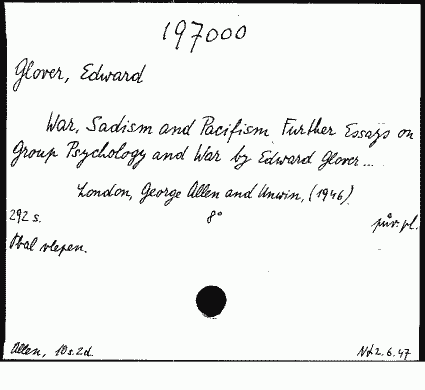 197000
Glover, Edward
War, Sadism and Pacifism Further Essays on
Group Psychology and War by Edward Glover...
London, George Allen and Unwin, (1946).
292 s. 8° pův. pl.
Obal vlepen.
Allen, 10s. 2d. 2.6.47